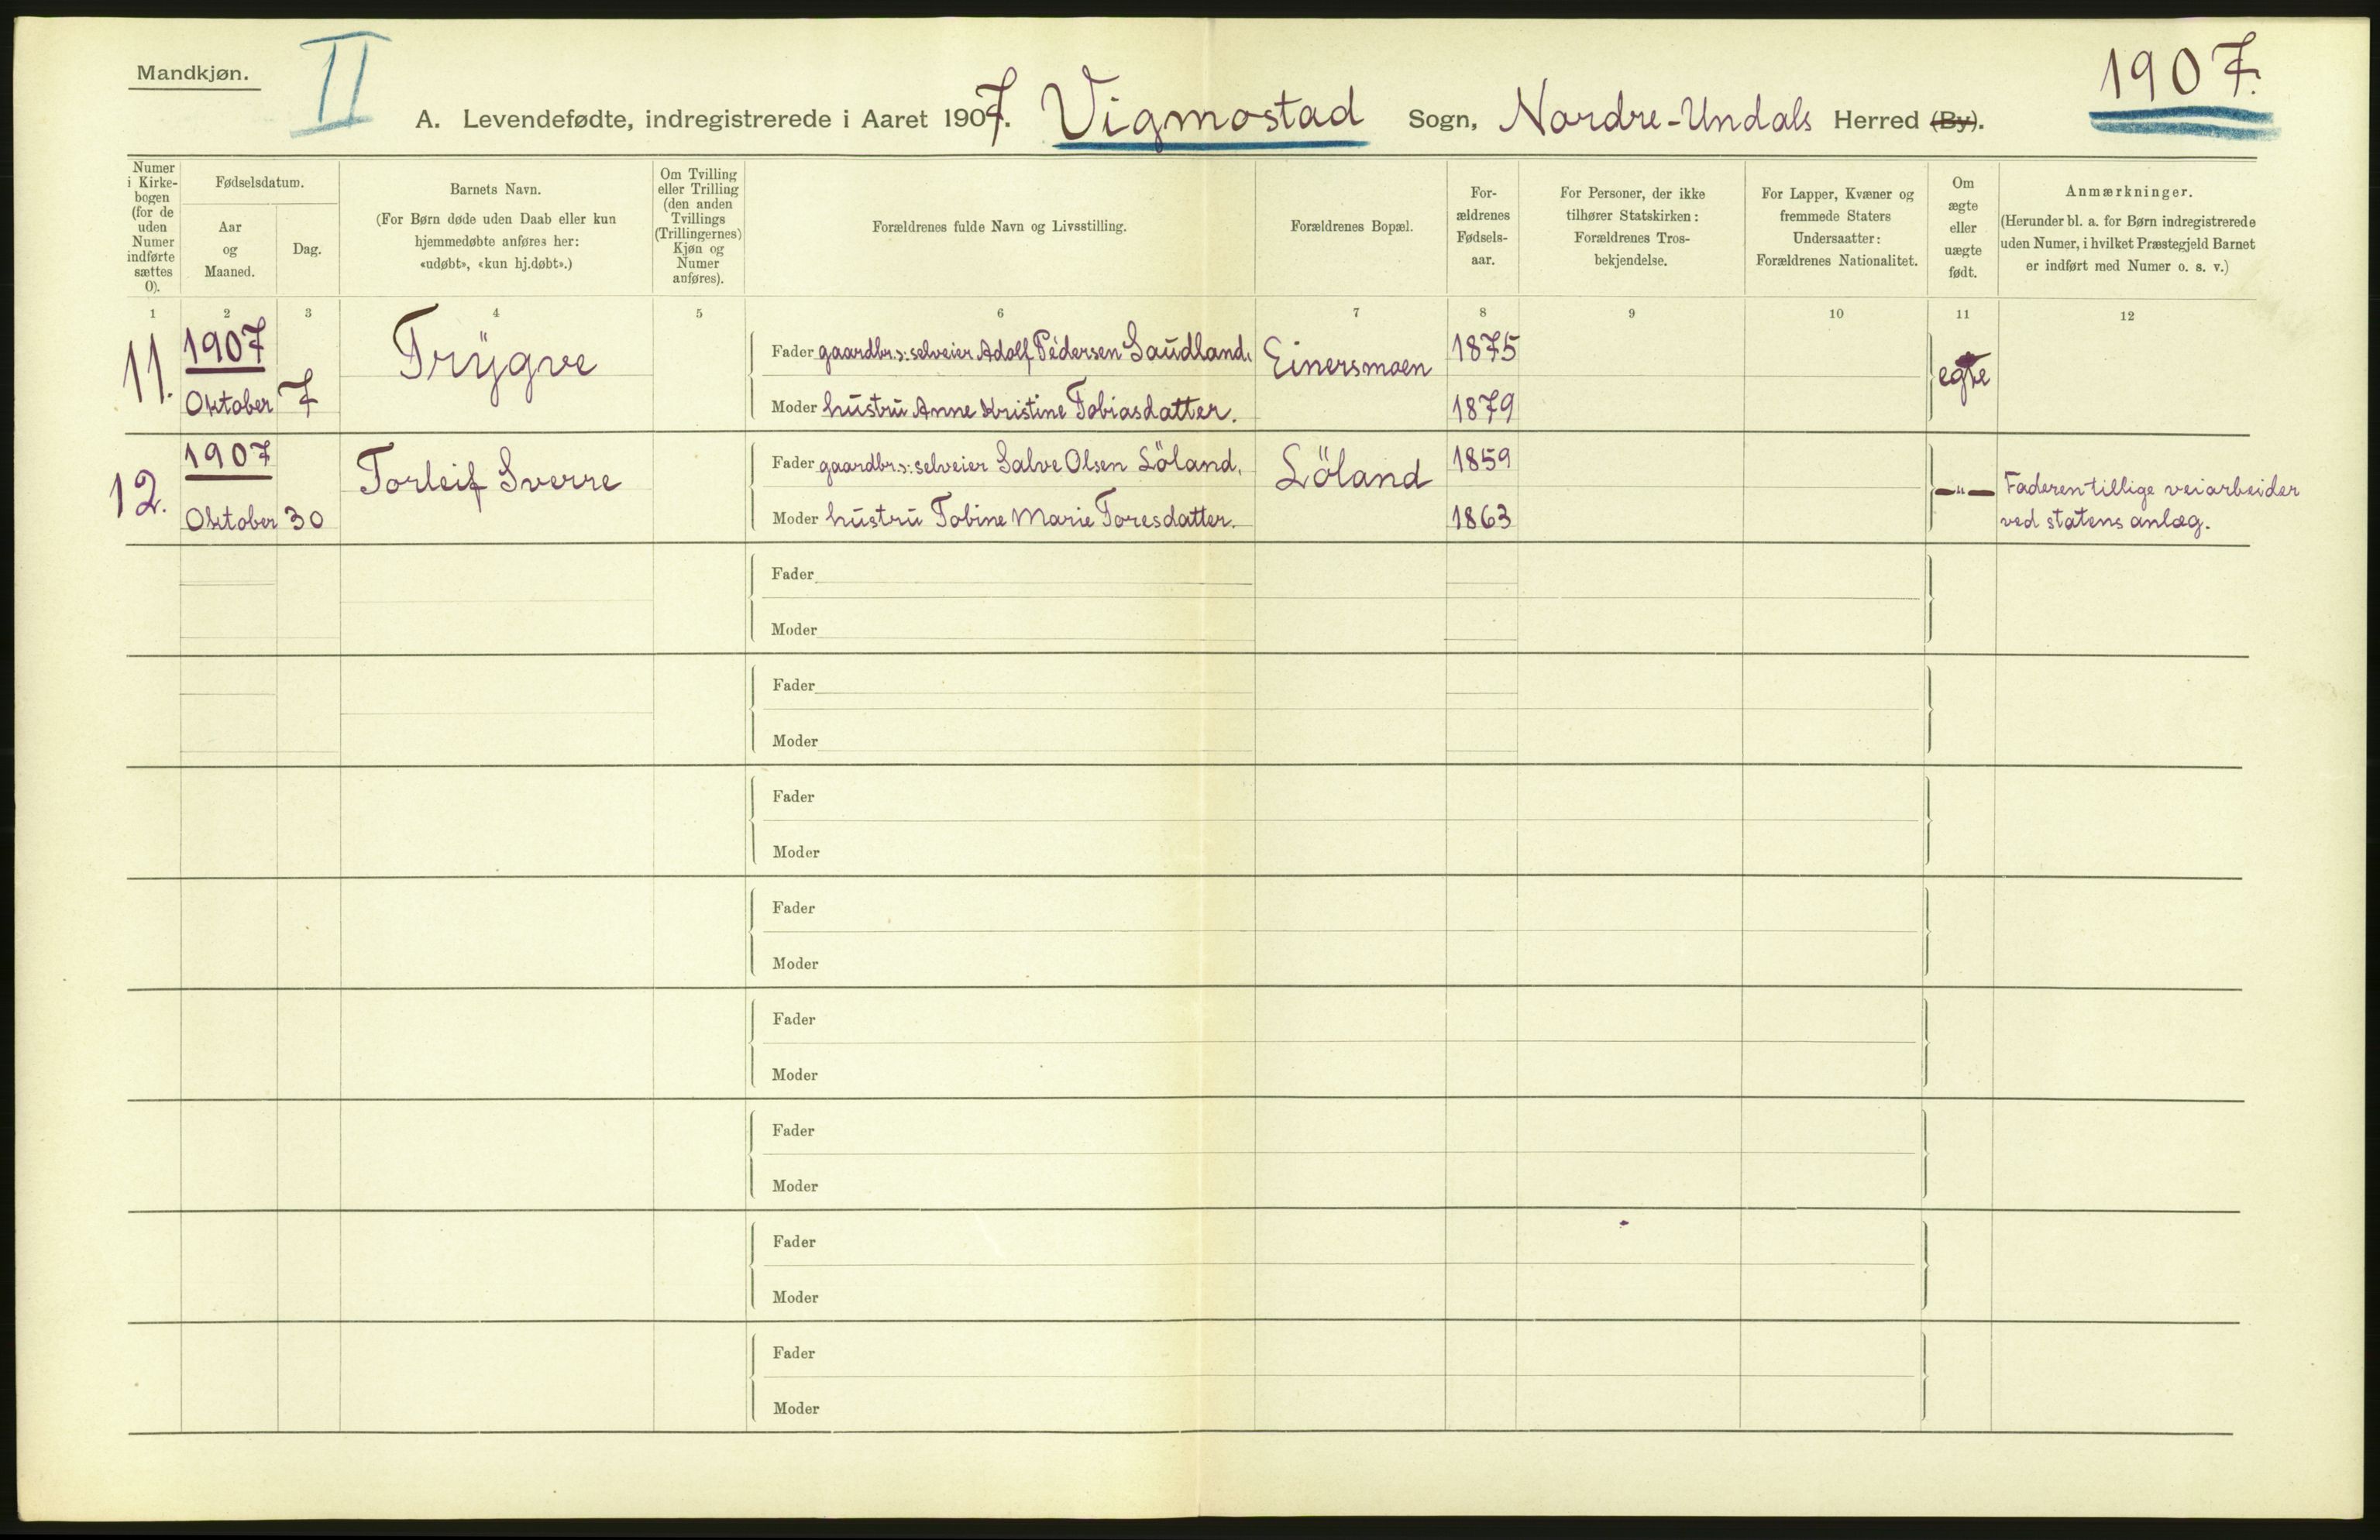 Mandkjøn.
II
1907.
A. Levendefødte, indregistrerede i Aaret 1907. Vigmostad Sogn, Nordre-Undals Herred (By).
Numer i Kirke-bogen (for de uden Numer indførte sættes 0).
Fødselsdatum.
Aar og Maaned.
Dag.
Barnets Navn.
(For Børn døde uden Daab eller kun
hjemmedøbte anføres her:
«udøbt», «kun hj.døbt».)
Om Tvilling
eller Trilling
(den anden
Tvillings
(Trillingernes)
Kjøn og
Numer
anføres).
Forældrenes fulde Navn og Livsstilling.
Forældrenes Bopæl.
For-
ældrenes
Fødsels-
aar.
For Personer, der ikke
tilhører Statskirken:
Forældrenes Tros-
bekjendelse.
For Lapper, Kvæner og
fremmede Staters
Undersaatter:
Forældrenes Nationalitet.
Om
ægte
eller
uægte
født.
Anmærkninger.
(Herunder bl. a. for Børn indregistrerede
uden Numer, i hvilket Præstegjeld Barnet
er indført med Numer o. s. v.)
1 2 3 4 5 6 7 8 9 10 11 12
11. 1907 Oktober 7 Trygve
Fader gaardbr. ɔ: selveier Adolf Pedersen Saudland. Einersmoen 1875 egte
Moder hustru Anne Kristine Tobiasdatter. 1879
12. 1907 Oktober 30 Torleif Sverre
Fader gaardbr. ɔ: selveier Salve Olsen Löland. Löland 1859 —"— Faderen tillige veiarbeider
Moder hustru Tobine Marie Toresdatter. 1863 ved statens anlæg.
Fader
Moder
Fader
Moder
Fader
Moder
Fader
Moder
Fader
Moder
Fader
Moder
Fader
Moder
Fader
Moder